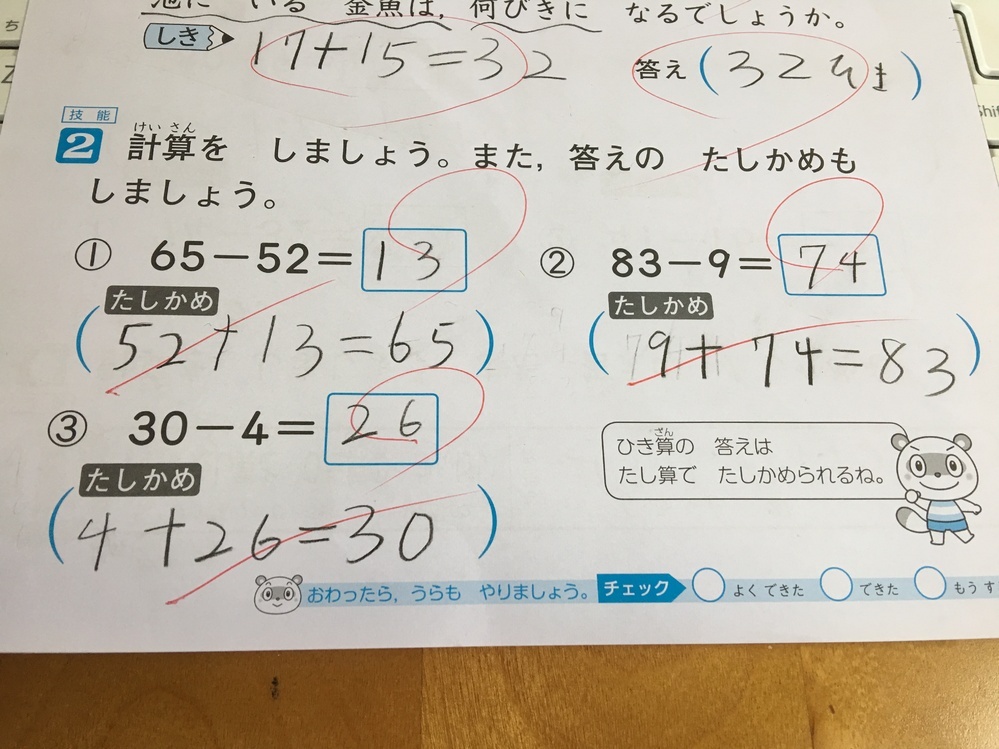 池に いる 金魚は，何びきに なるでしょうか。
しき 17+15=32 答え（32ひき）
技能
けいさん
2 計算を しましょう。また，答えの たしかめも
しましょう。
① 65−52=13 ② 83−9=74
たしかめ たしかめ
（52+13=65） （9+74=83）
③ 30−4=26
ざん
ひき算の 答えは
たし算で たしかめられるね。
たしかめ
（4+26=30）
おわったら，うらも やりましょう。 チェック よくできた できた もうす